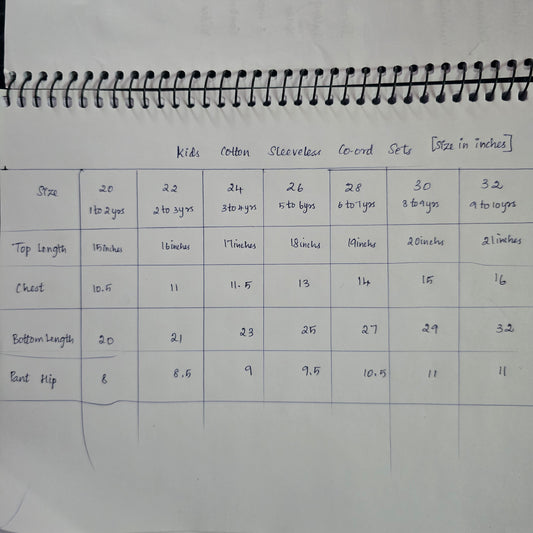 Kids Cotton Sleeveless Co-ord Sets [Size in inches]
Size 20 22 24 26 28 30 32
1 to 2yrs 2 to 3yrs 3 to 4yrs 5 to 6yrs 6 to 7yrs 8 to 9yrs 9 to 10yrs
Top Length 15inches 16inches 17inches 18inches 19inches 20inches 21inches
Chest 10.5 11 11.5 13 14 15 16
Bottom Length 20 21 23 25 27 29 32
Pant Hip 8 8.5 9 9.5 10.5 11 11